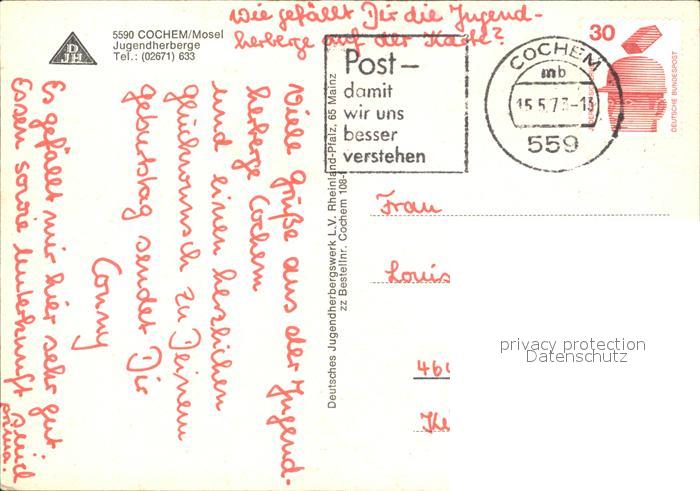 Wie gefällt Dir die Jugend-
herberge auf der Karte?
5590 COCHEM/Mosel
Jugendherberge
Tel.: (02671) 633
DJH
Viele Grüße aus der Jugend-
herberge Cochem
und einen herzlichen
Glückwunsch zu Deinem
Geburtstag sendet Dir
Conny
Es gefällt mir hier sehr gut.
Essen sowie Unterkunft sind
prima.
Deutsches Jugendherbergswerk L.V. Rheinland-Pfalz, 65 Mainz
zz BestellNr. Cochem 108-
Post-
damit
wir uns
besser
verstehen
COCHEM
mb
559
30
DEUTSCHE BUNDESPOST
Frau
Louis
privacy protection
Datenschutz